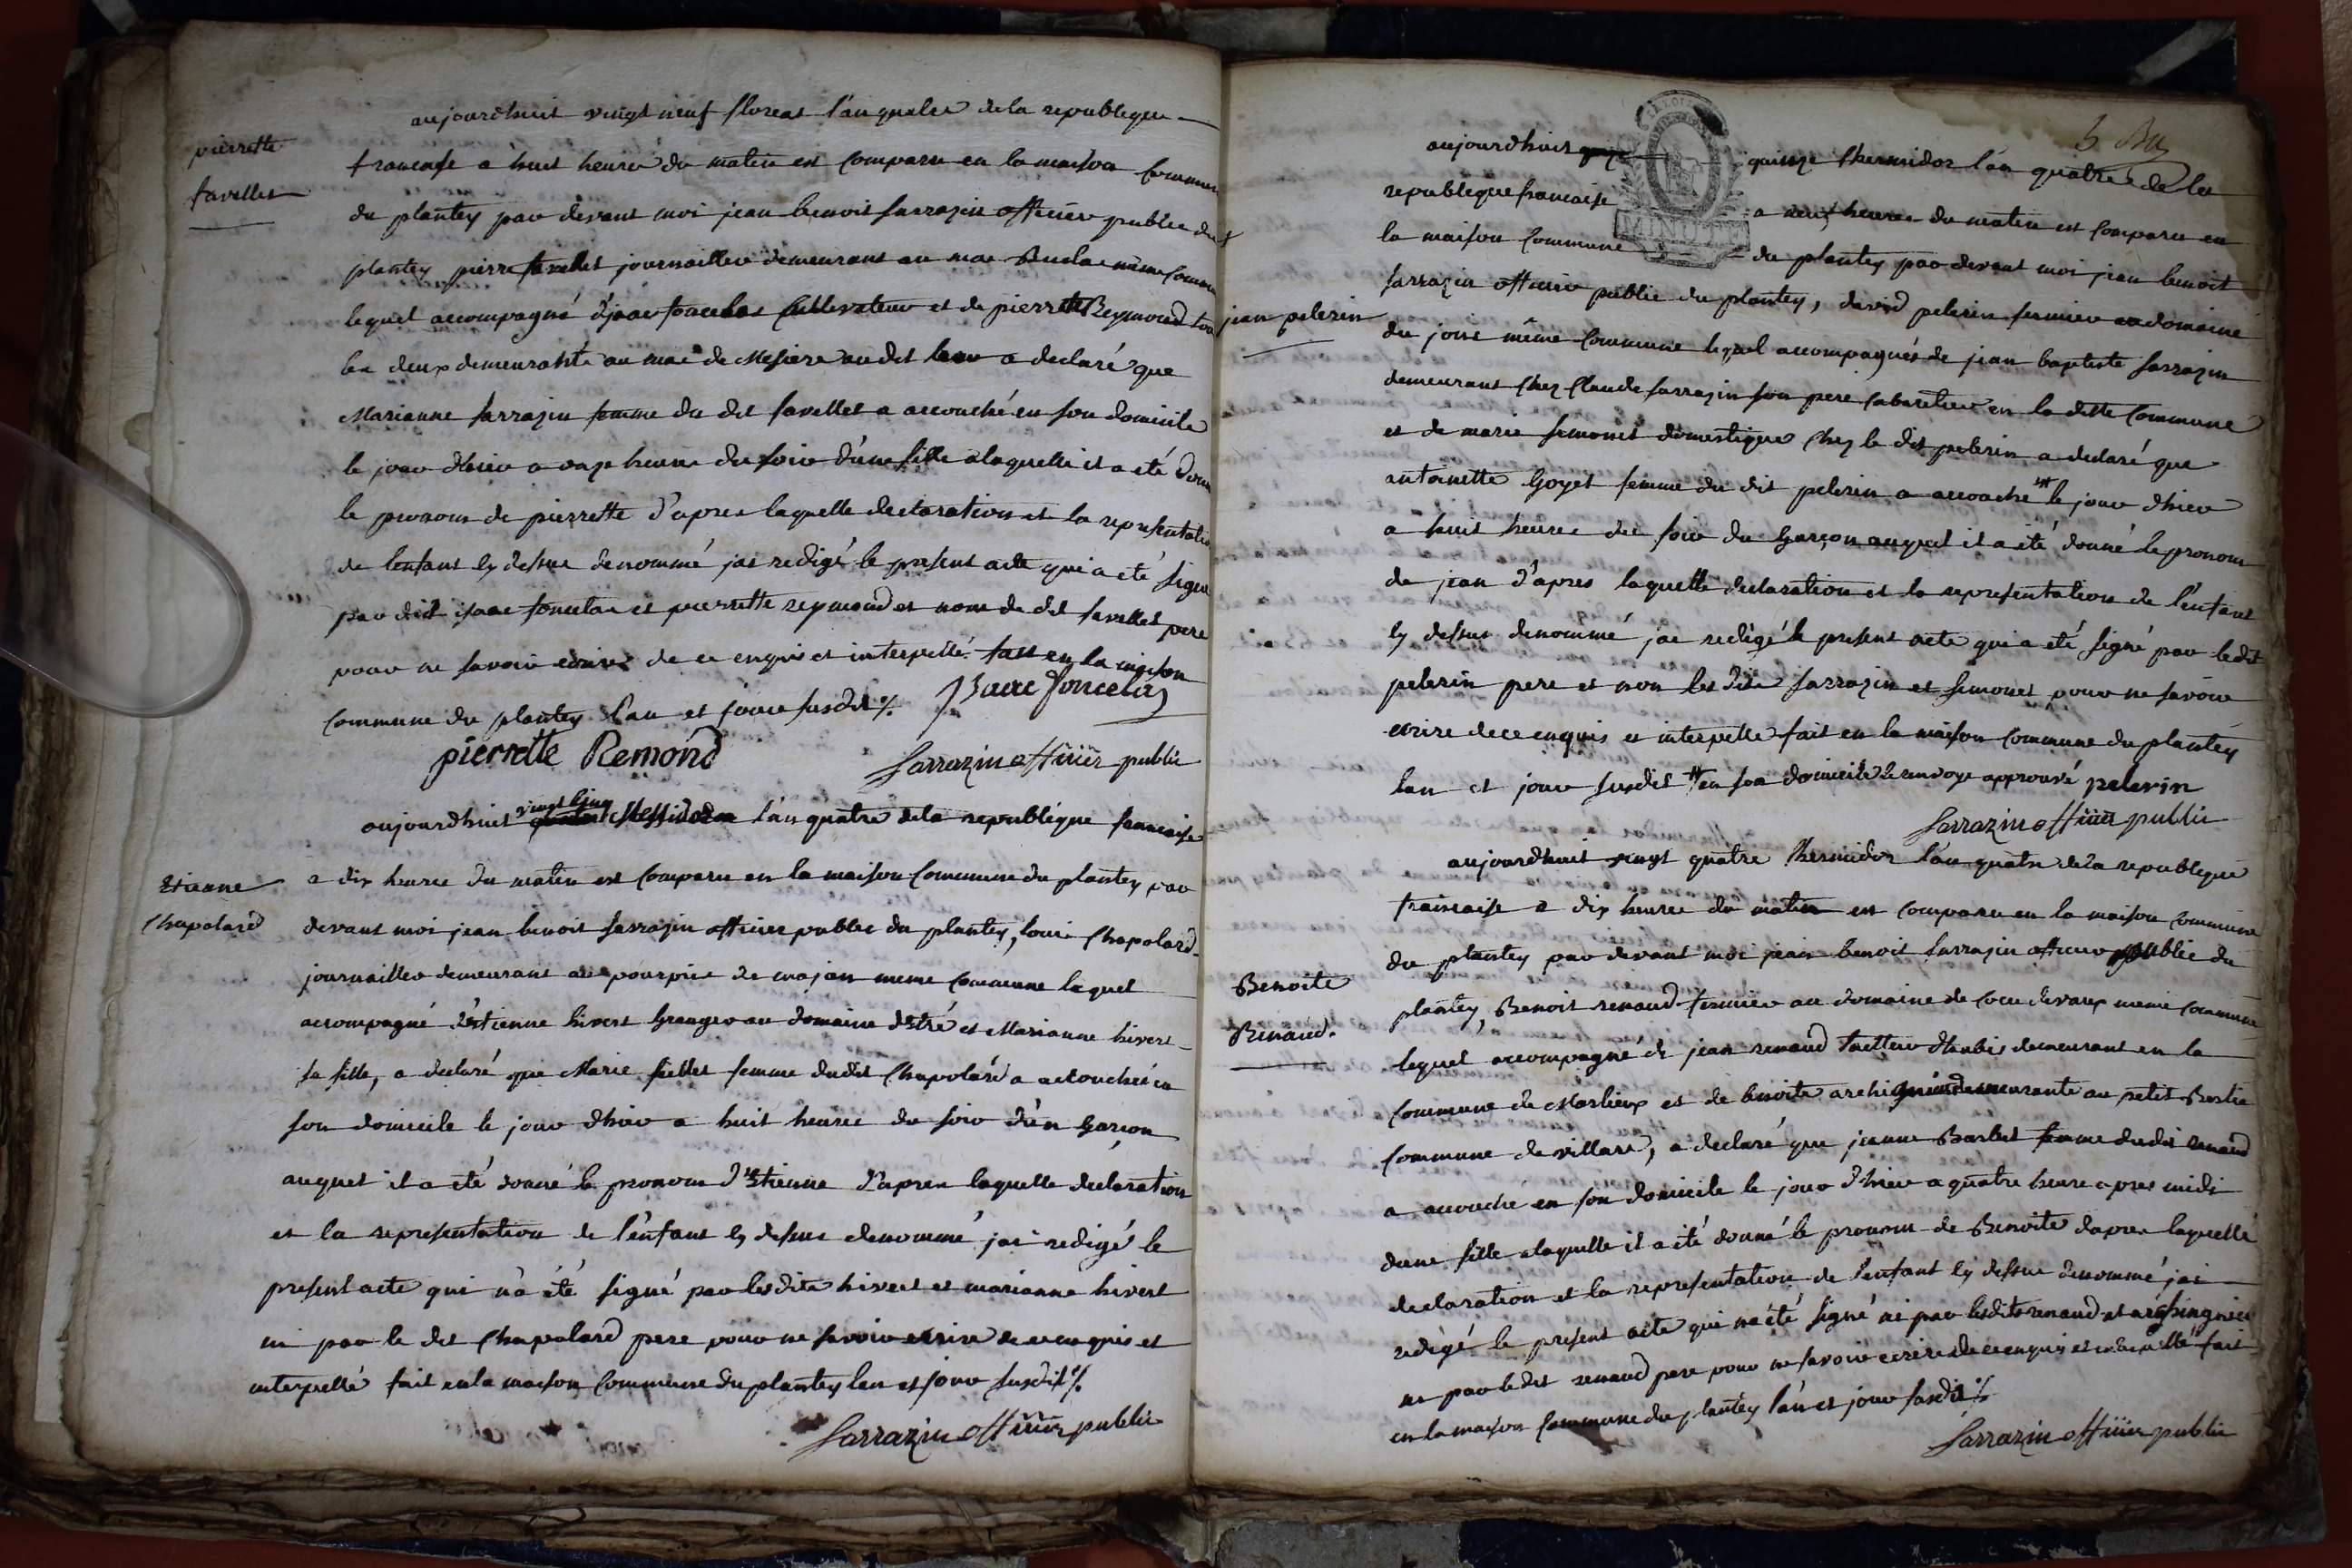 pierrette
favellet
aujourdhuit vingt neuf floreal l'an quatre de la republeque
francaise a huit heures du matin est comparu en la maison commune
du plantey par devant moi jean benoit sarrazin officier public du
plantey pierre favellet journaillier demeurant au mas Buclas même commune
lequel accompagné d'isaac foncelas cultivateur et de pierrette Reymond tous
les deux demeurants au mas de Mesiere audit lieu a declaré que
Marianne sarrazin femme du dit favellet a accouché en son domicile
le jour dhier a onze heures du soir d'une fille alaquelle il a été donné
le pronom de pierrette d'apres laquelle declaration et la representation
de lenfant cy dessus denommé jai redigé le present acte qui a été signé
par dit isaac foncelas et pierrette reymond et nom de dit favellet pere
pour ne savoir ecrire de ce enquis et interpellé fait en la maison
commune du plantey l'an et jour susdit %. Isaac foncelas
pierrette Remond sarrazin officier public
Etienne
Chapolard
aujourdhuit vingt cinq Messidor l'an quatre dela republique francaise
a dix heures du matin est comparu en la maison commune du plantey par
devant moi jean benoit sarrazin officier public du plantey, louis Chapolard
journaillier demeurant au pourprix de majan meme commune lequel
accompagné d'étienne hivert granger au domaine d'Etré et Marianne hivert
sa fille, a declaré que Marie fillet femme dudit Chapolard a accouchée en
son domicile le jour dhier a huit heures du soir d'un garcon
auquel il a été donné le pronom d'Etienne d'apres laquelle declaration
et la representation de l'enfant cy dessus denommé jai redigé le
present acte qui n'a été signé par lesdits hivert et marianne hivert
ni par le dit Chapolard pere pour ne savoir ecrire de ce enquis et
interpellé fait en la maison commune du plantey lan et jour susdit %
sarrazin officier public
jean pelerin
aujourdhuit quinze thermidor l'an quatre de la
republeque francaise a neuf heures du matin est comparu en
la maison commune du plantey par devant moi jean benoit
MINUTE
sarrazin officier public du plantey, david pelerin fermier au domaine
du joins même commune lequel accompagnés de jean baptiste sarrazin
demeurant chez Claude sarrazin son pere cabaretier en la ditte commune
et de marie simonet domestique chez le dit pelerin a declaré que
antoinette Goyet femme du dit pelerin a accouché # le jour dhier
a huit heures du soir du garçon auquel il a été donné le pronom
de jean d'apres laquelle declaration et la representation de l'enfant
cy dessus denommé jai redigé le present acte qui a été signé par ledit
pelerin pere et non les dits sarrazin et simonet pour ne savoir
ecrire de ce enquis et interpellé fait en la maison commune du plantey
lan et jour susdit # en son domicile le renvoye approuvé pelerin
sarrazin officier public
Benoite
Renaud.
aujourdhuit vingt quatre thermidor l'an quatre de la republeque
francaise a dix heures du matin est comparu en la maison commune
du plantey par devant moi jean benoit sarrazin officier public du
plantey, Benoit renaud fermier au domaine de meme commune
lequel accompagné de jean renaud tailleur dhabis demeurant en la
commune de Marlieux et de benoite demeurante au petit
commune de villard, a declaré que jeanne Barlet femme dudit renaud
a accouché en son domicile le jour d'hier a quatre heure apres midi
dune fille alaquelle il a été donné le pronom de Benoite dapres laquelle
declaration et la representation de l'enfant cy dessus denommé jai
redigé le present acte qui na été signé ni par lesdits renaud et
ni par ledit renaud pere pour ne savoir ecrire de ce enquis et interpellé fait
en la maison commune du plantey l'an et jour susdit %
sarrazin officier public